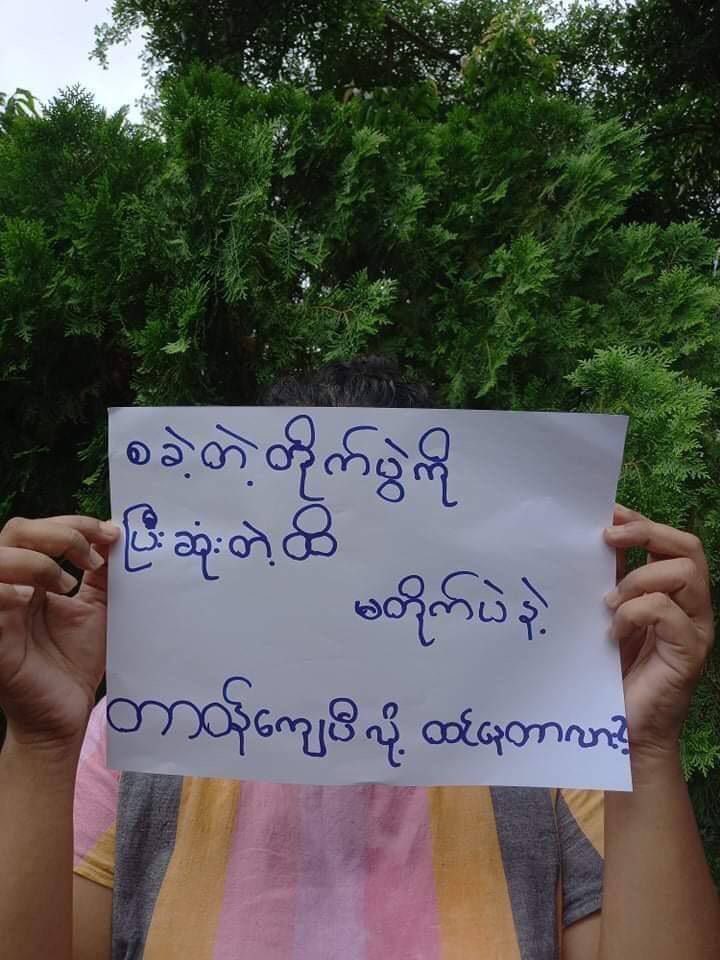 စခဲ့တဲ့တိုက်ပွဲကို
ပြီးဆုံးတဲ့ထိ
မတိုက်ပဲနဲ့
တာဝန်ကျေပီလို့ ထင်နေတာလား?